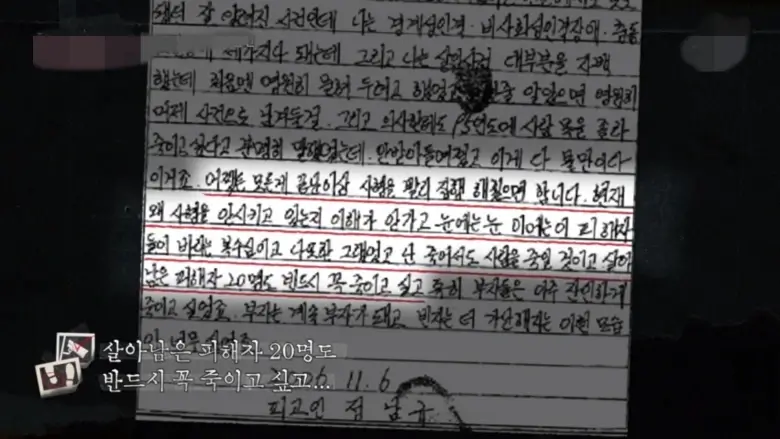 됐던 잘 알려진 사건인데 나는 경계성인격·비사회성인격장애·충동
그리고 나는 살인사건 대부분을 자백
했는데 처음엔 영원히 묻혀 두려고 했었고 알았으면 영원히
미제 사건으로 남겨둘걸. 그리고 의사한테도 95년도에 사람 목을 졸라
죽이고 싶다고 분명히 말했었는데. 안받아들여졌고 이게 다 불만이다
이거죠. 어쨌든 모든게 끝난이상 사형을 빨리 집행 해줬으면 합니다. 현재
왜 사형을 안시키고 있는지 이해가 안가고 눈에는눈 이에는이 피해자
들이 바라는 복수심이고 나또한 그랬었고 난 죽어서도 사람을 죽일 것이고 살아
남은 피해자 20명도 반드시 꼭 죽이고 싶고 특히 부자들은 아주 잔인하게
죽이고 싶었죠. 부자는 계속 부자가 돼고, 빈자는 더 가난해지는 이런 모습
살아남은 피해자 20명도
반드시 꼭 죽이고 싶고...
6. 11. 6
피고인 정 남 규